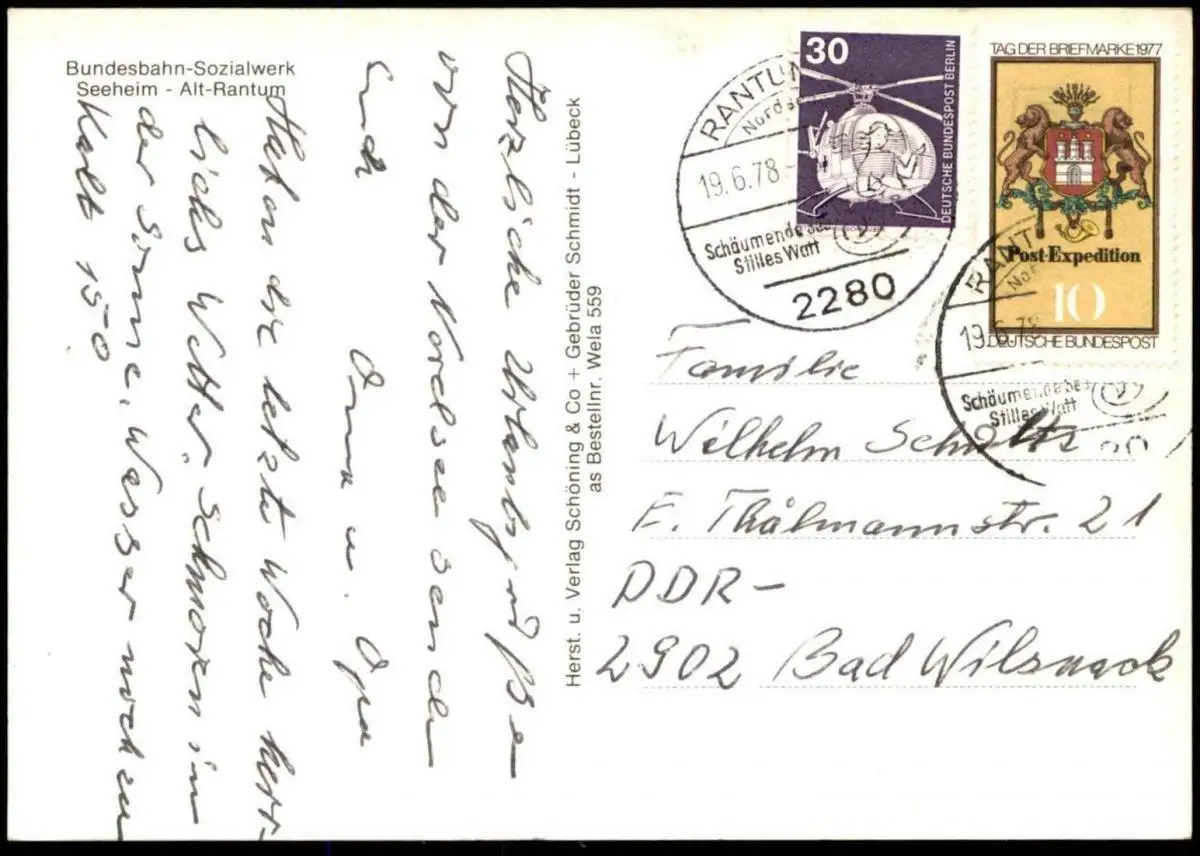 Bundesbahn-Sozialwerk
Seeheim - Alt-Rantum
Herzliche Urlaubsgrüße
von der Nordsee senden
Euch Oma u. Opa
Haben die letzte Woche herr-
liches Wetter, schmoren in
der Sonne, Wasser noch zu
kalt 15°
Herst. u. Verlag Schöning & Co + Gebrüder Schmidt - Lübeck
as Bestellnr. Wela 559
30
DEUTSCHE BUNDESPOST BERLIN
TAG DER BRIEFMARKE 1977
Post-Expedition
10
DEUTSCHE BUNDESPOST
RANTUM
19.6.78
Schäumende See
Stilles Watt
2280
RANTU
19.6.78
Schäumende See
Stilles Watt
Familie
Wilhelm
E. Thälmannstr. 21
DDR-
2902 Bad Wilsnack